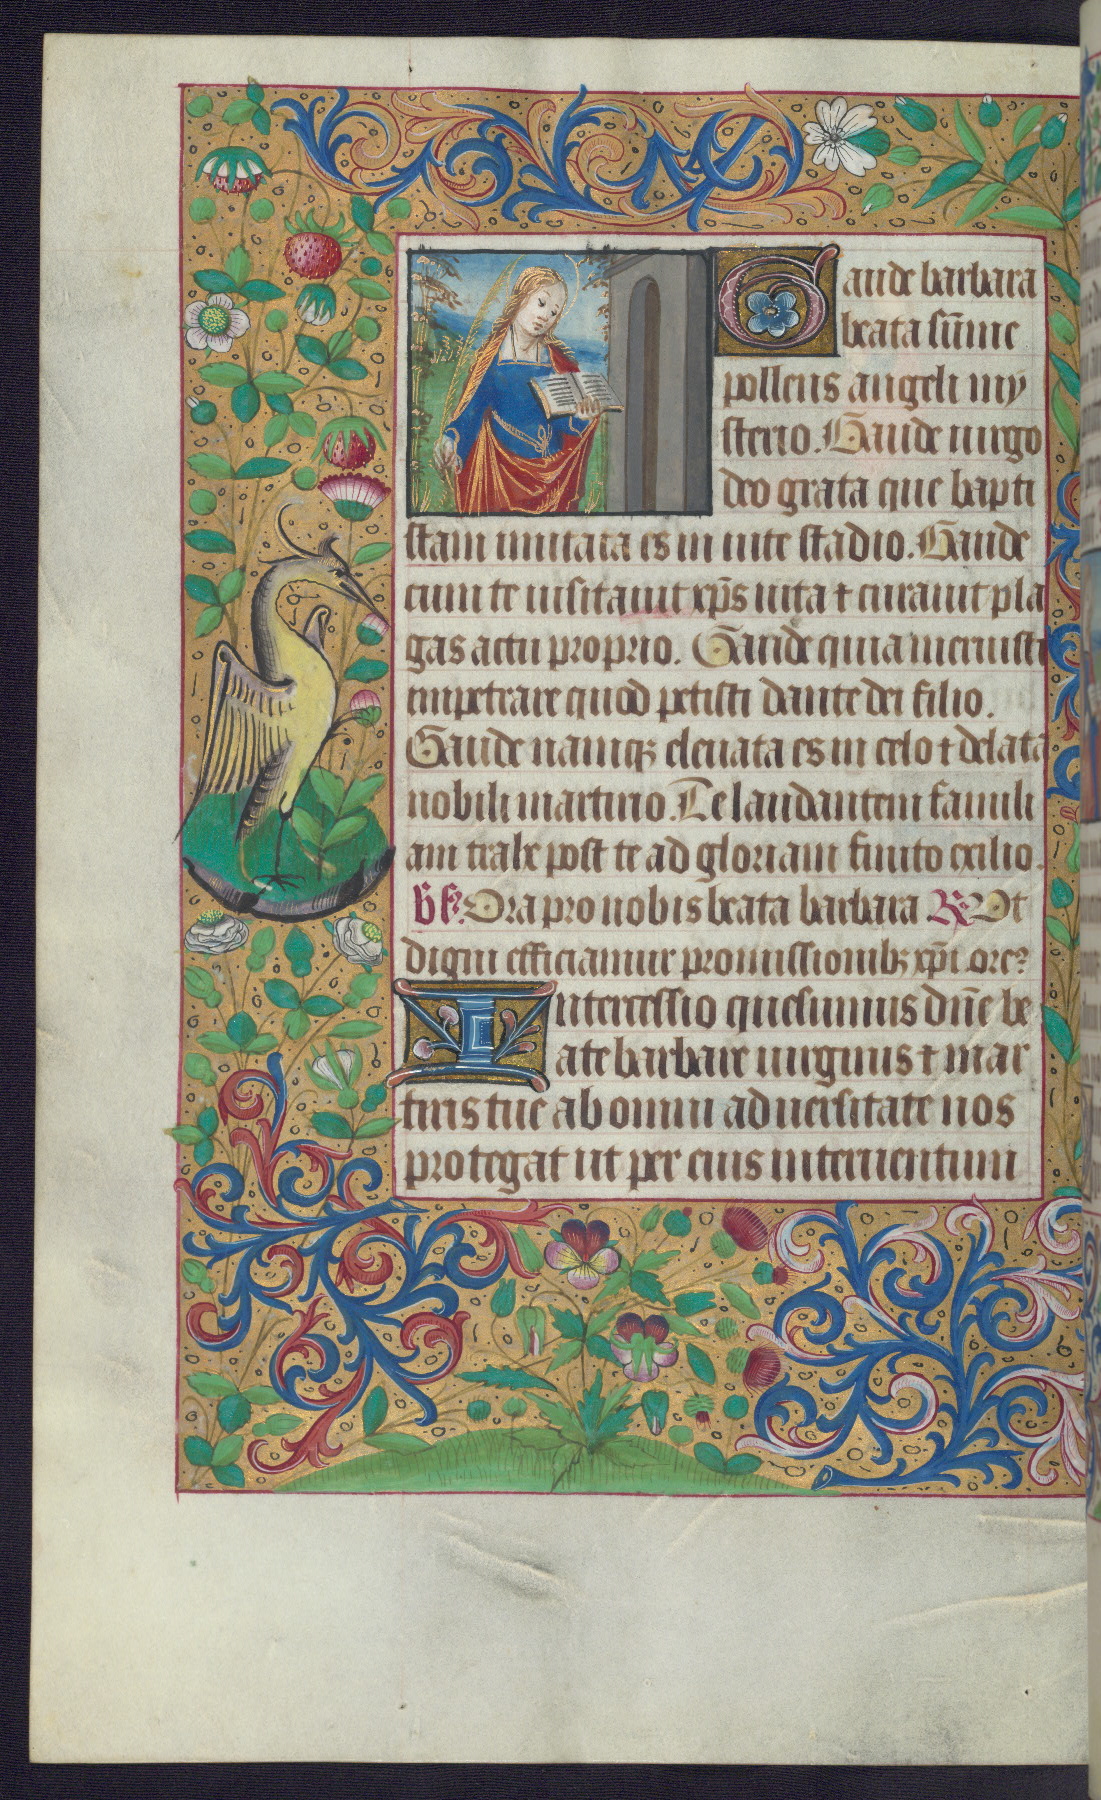 Gaude barbara
beata sūme
pollens angeli my
sterio. Gaude uirgo
deo grata que bapti
stam imitata es in uite stadio. Gaude
cum te uisitauit xp̄s uita ⁊ curauit pla
gas actu proprio. Gaude quia meruisti
impetrare quod petisti dante dei filio.
Gaude namqꝫ eleuata es in celo ⁊ delata
nobili martirio. Te laudantem famili
am trahe post te ad gloriam finito exilio.
Ora pro nobis beata barbara ℟ Ut
digni efficiamur promissionibꝫ xp̄i. ore?
Intercessio quesumus dn̄e be
ate barbare uirginis ⁊ mar
tiris tue ab omni aduersitate nos
protegat ut per eius interuentum